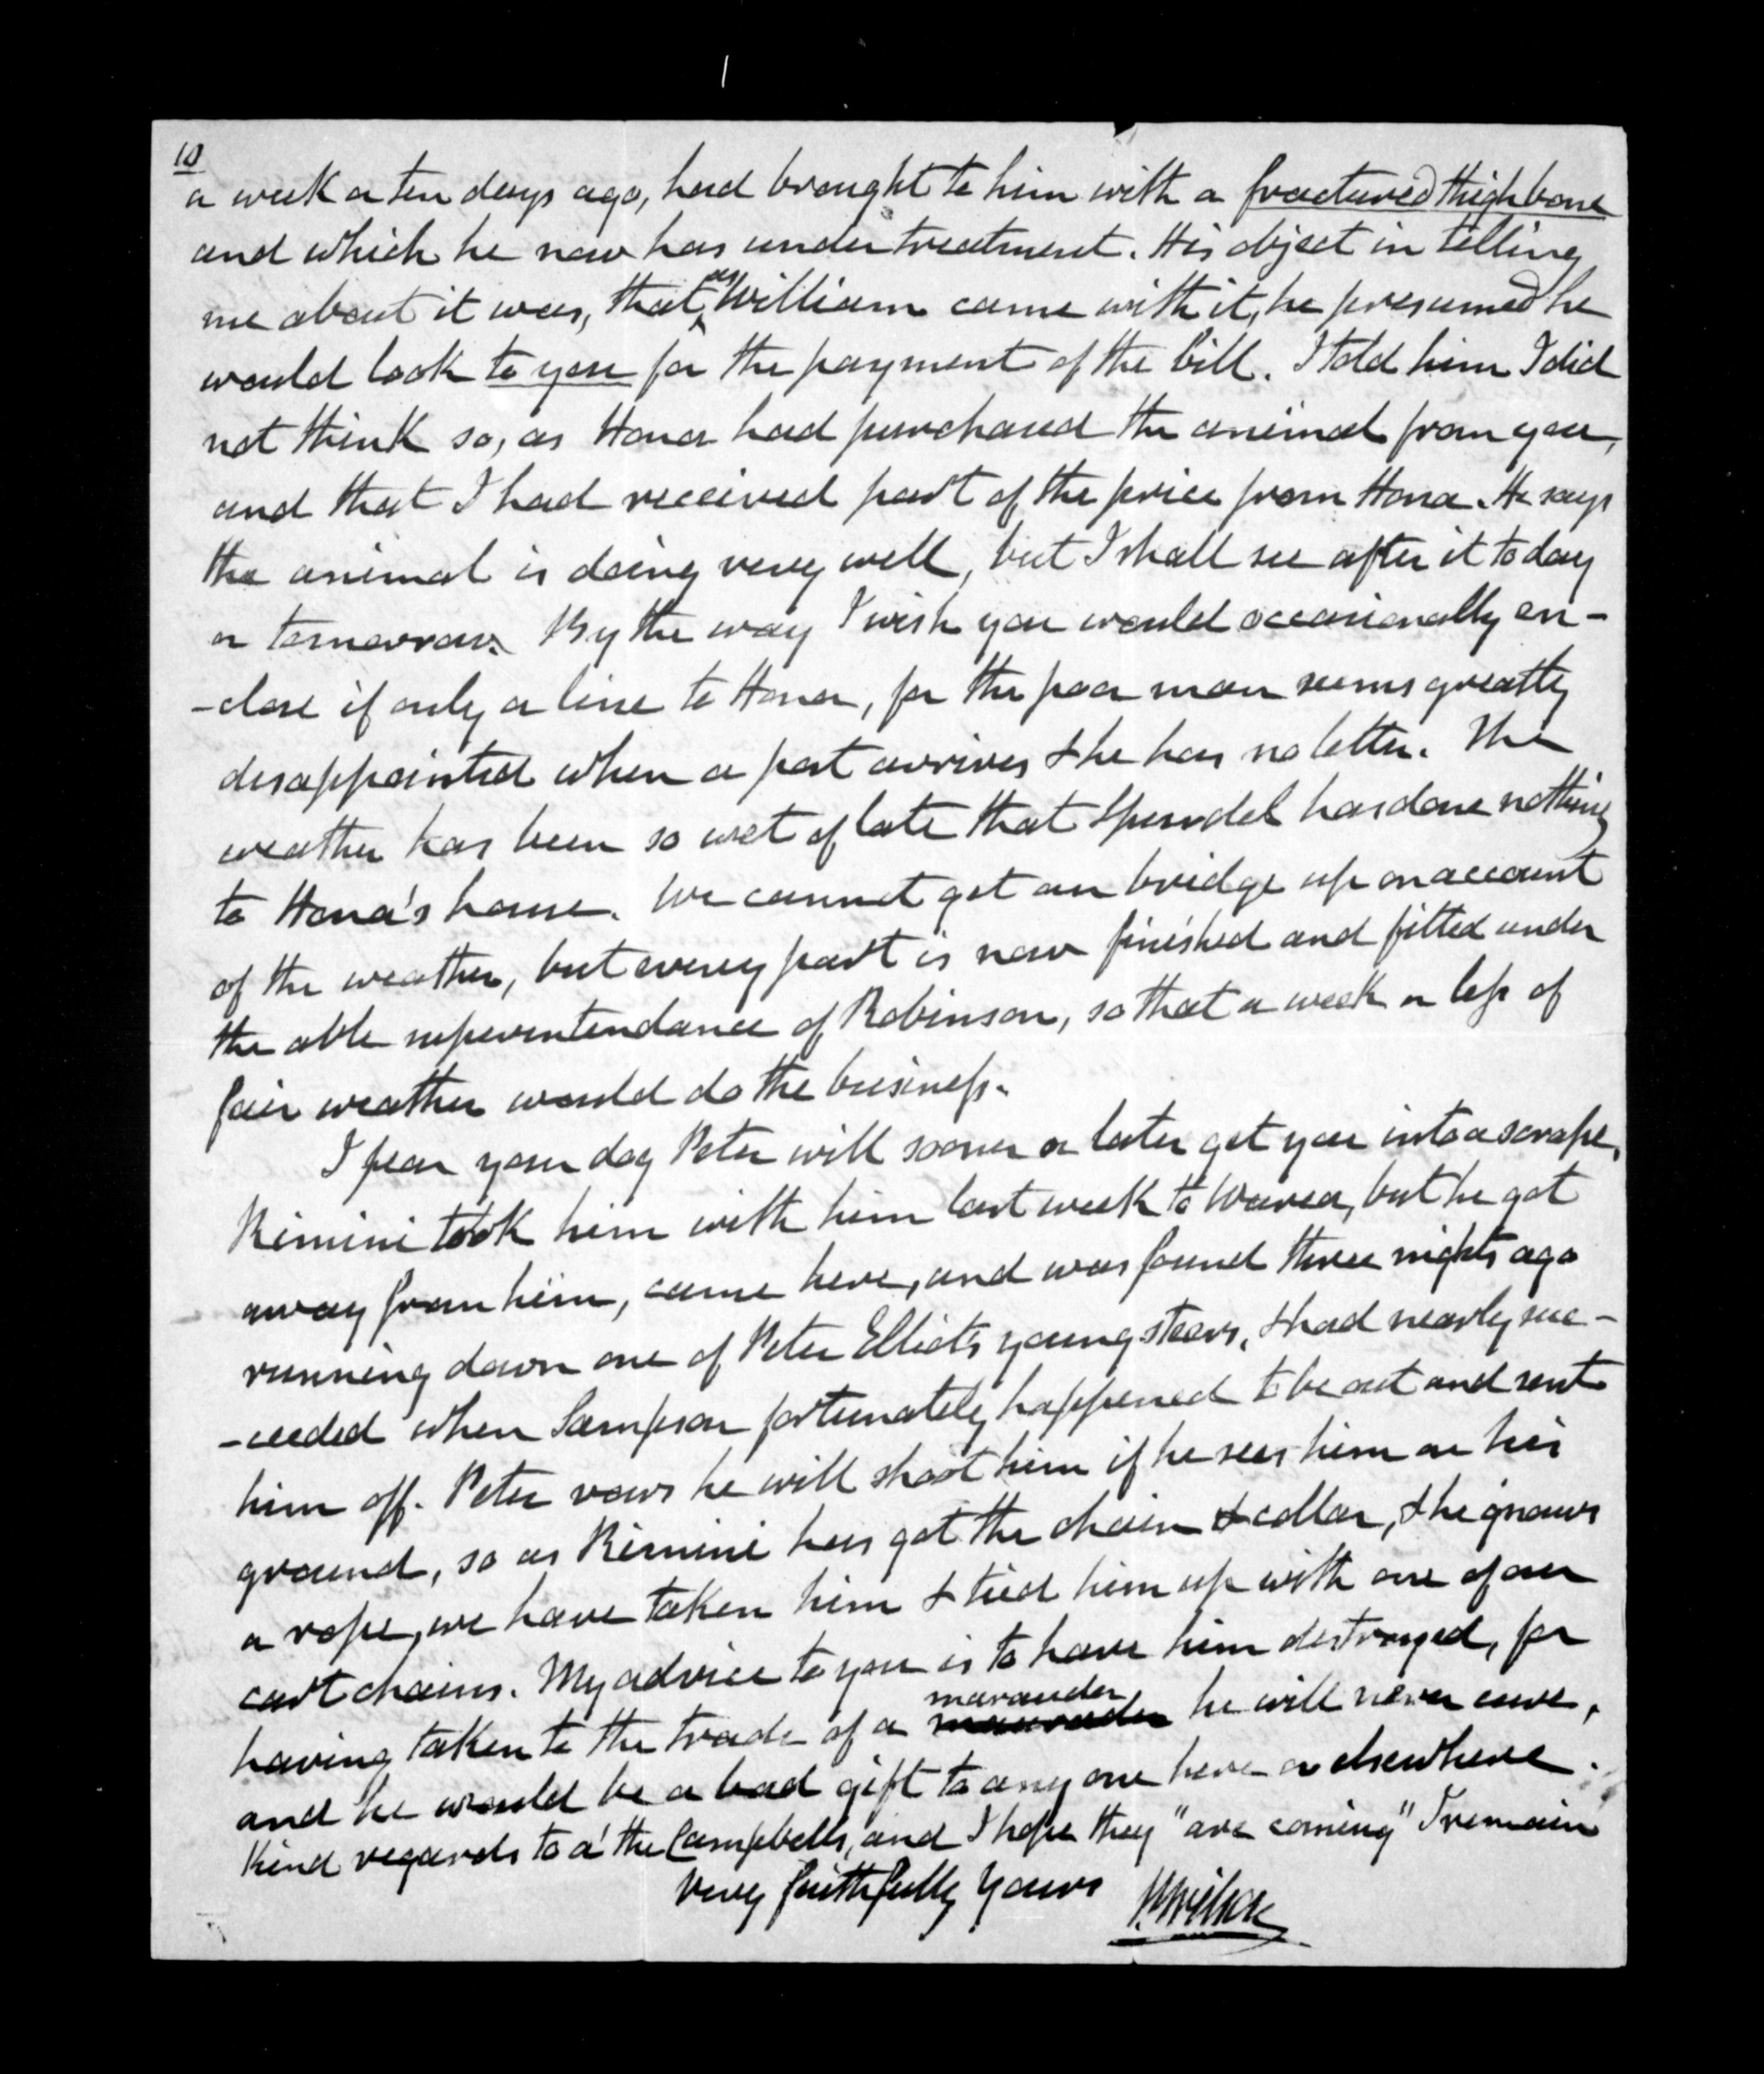 10
a week or ten days ago, had brought to him with a fractured thigh bone
and which he now has under treatment. His object in telling
me about it was, that as William came with it, he presumed he
would look to you for the payment of the bill. I told him I did
not think so, as Hona had purchased the animal from you,
and that I had received part of the price from Hona. He says
the animal is doing very well, but I shall see after it today
or tomorrow. By the way I wish you would occasionally en-
-close if only a line to Hona, for the poor man seems greatly
disappointed when a post arrives & he has no letter. The
weather has been so wet of late that Spurdel has done nothing
to Hona's house. We cannot get our bridge up on account
of the weather, but every part is now finished and fitted under
the able superintendance of Robinson, so that a week or less of
fair weather would do the business.
I fear your dog Peter will sooner or later get you into a scrape.
Rimini took him with him last week to Warea, but he got
away from him, came here, and was found three nights ago
running down one of Peter Elliot's young steers, & had nearly suc-
-ceeded when Sampson fortunately happened to be out and sent
him off. Peter vows he will shoot him if he sees him on his
ground, so as Rimini has got the chain & collar, & he gnaws
a rope, we have taken him & tied him up with one of our
cart chains. My advice to you is to have him destroyed, for
having taken to the trade of a marauder he will never cure,
and he would be a bad gift to any one here or elsewhere.
Kind regards to a' the Campbells, and I hope they "are coming" I remain
Very faithfully Yours
P. Wilson